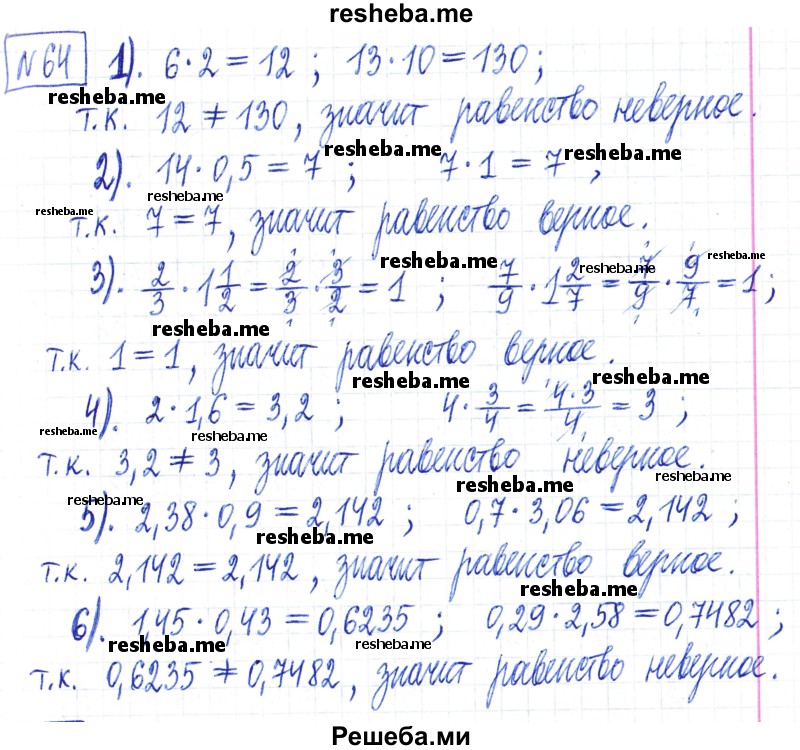 resheba.me
№64 1). 6·2=12; 13·10=130;
resheba.me
т.к. 12≠130, значит равенство неверное.
resheba.me
2). 14·0,5=7; 7·1=7,
resheba.me
resheba.me
resheba.me
т.к. 7=7, значит равенство верное.
resheba.me
resheba.me
resheba.me
3). 2/3·1 1/2=2/3·3/2=1; 7/9·1 2/7=7/9·9/7=1;
resheba.me
т.к. 1=1, значит равенство верное.
resheba.me
resheba.me
4). 2·1,6=3,2; 4·3/4=4·3/4=3;
resheba.me
resheba.me
т.к. 3,2≠3, значит равенство неверное.
resheba.me
resheba.me
resheba.me
5). 2,38·0,9=2,142; 0,7·3,06=2,142;
resheba.me
т.к. 2,142=2,142, значит равенство верное.
resheba.me
6). 1,45·0,43=0,6235; 0,29·2,58=0,7482;
resheba.me
т.к. 0,6235≠0,7482, значит равенство неверное.
Решеба.ми